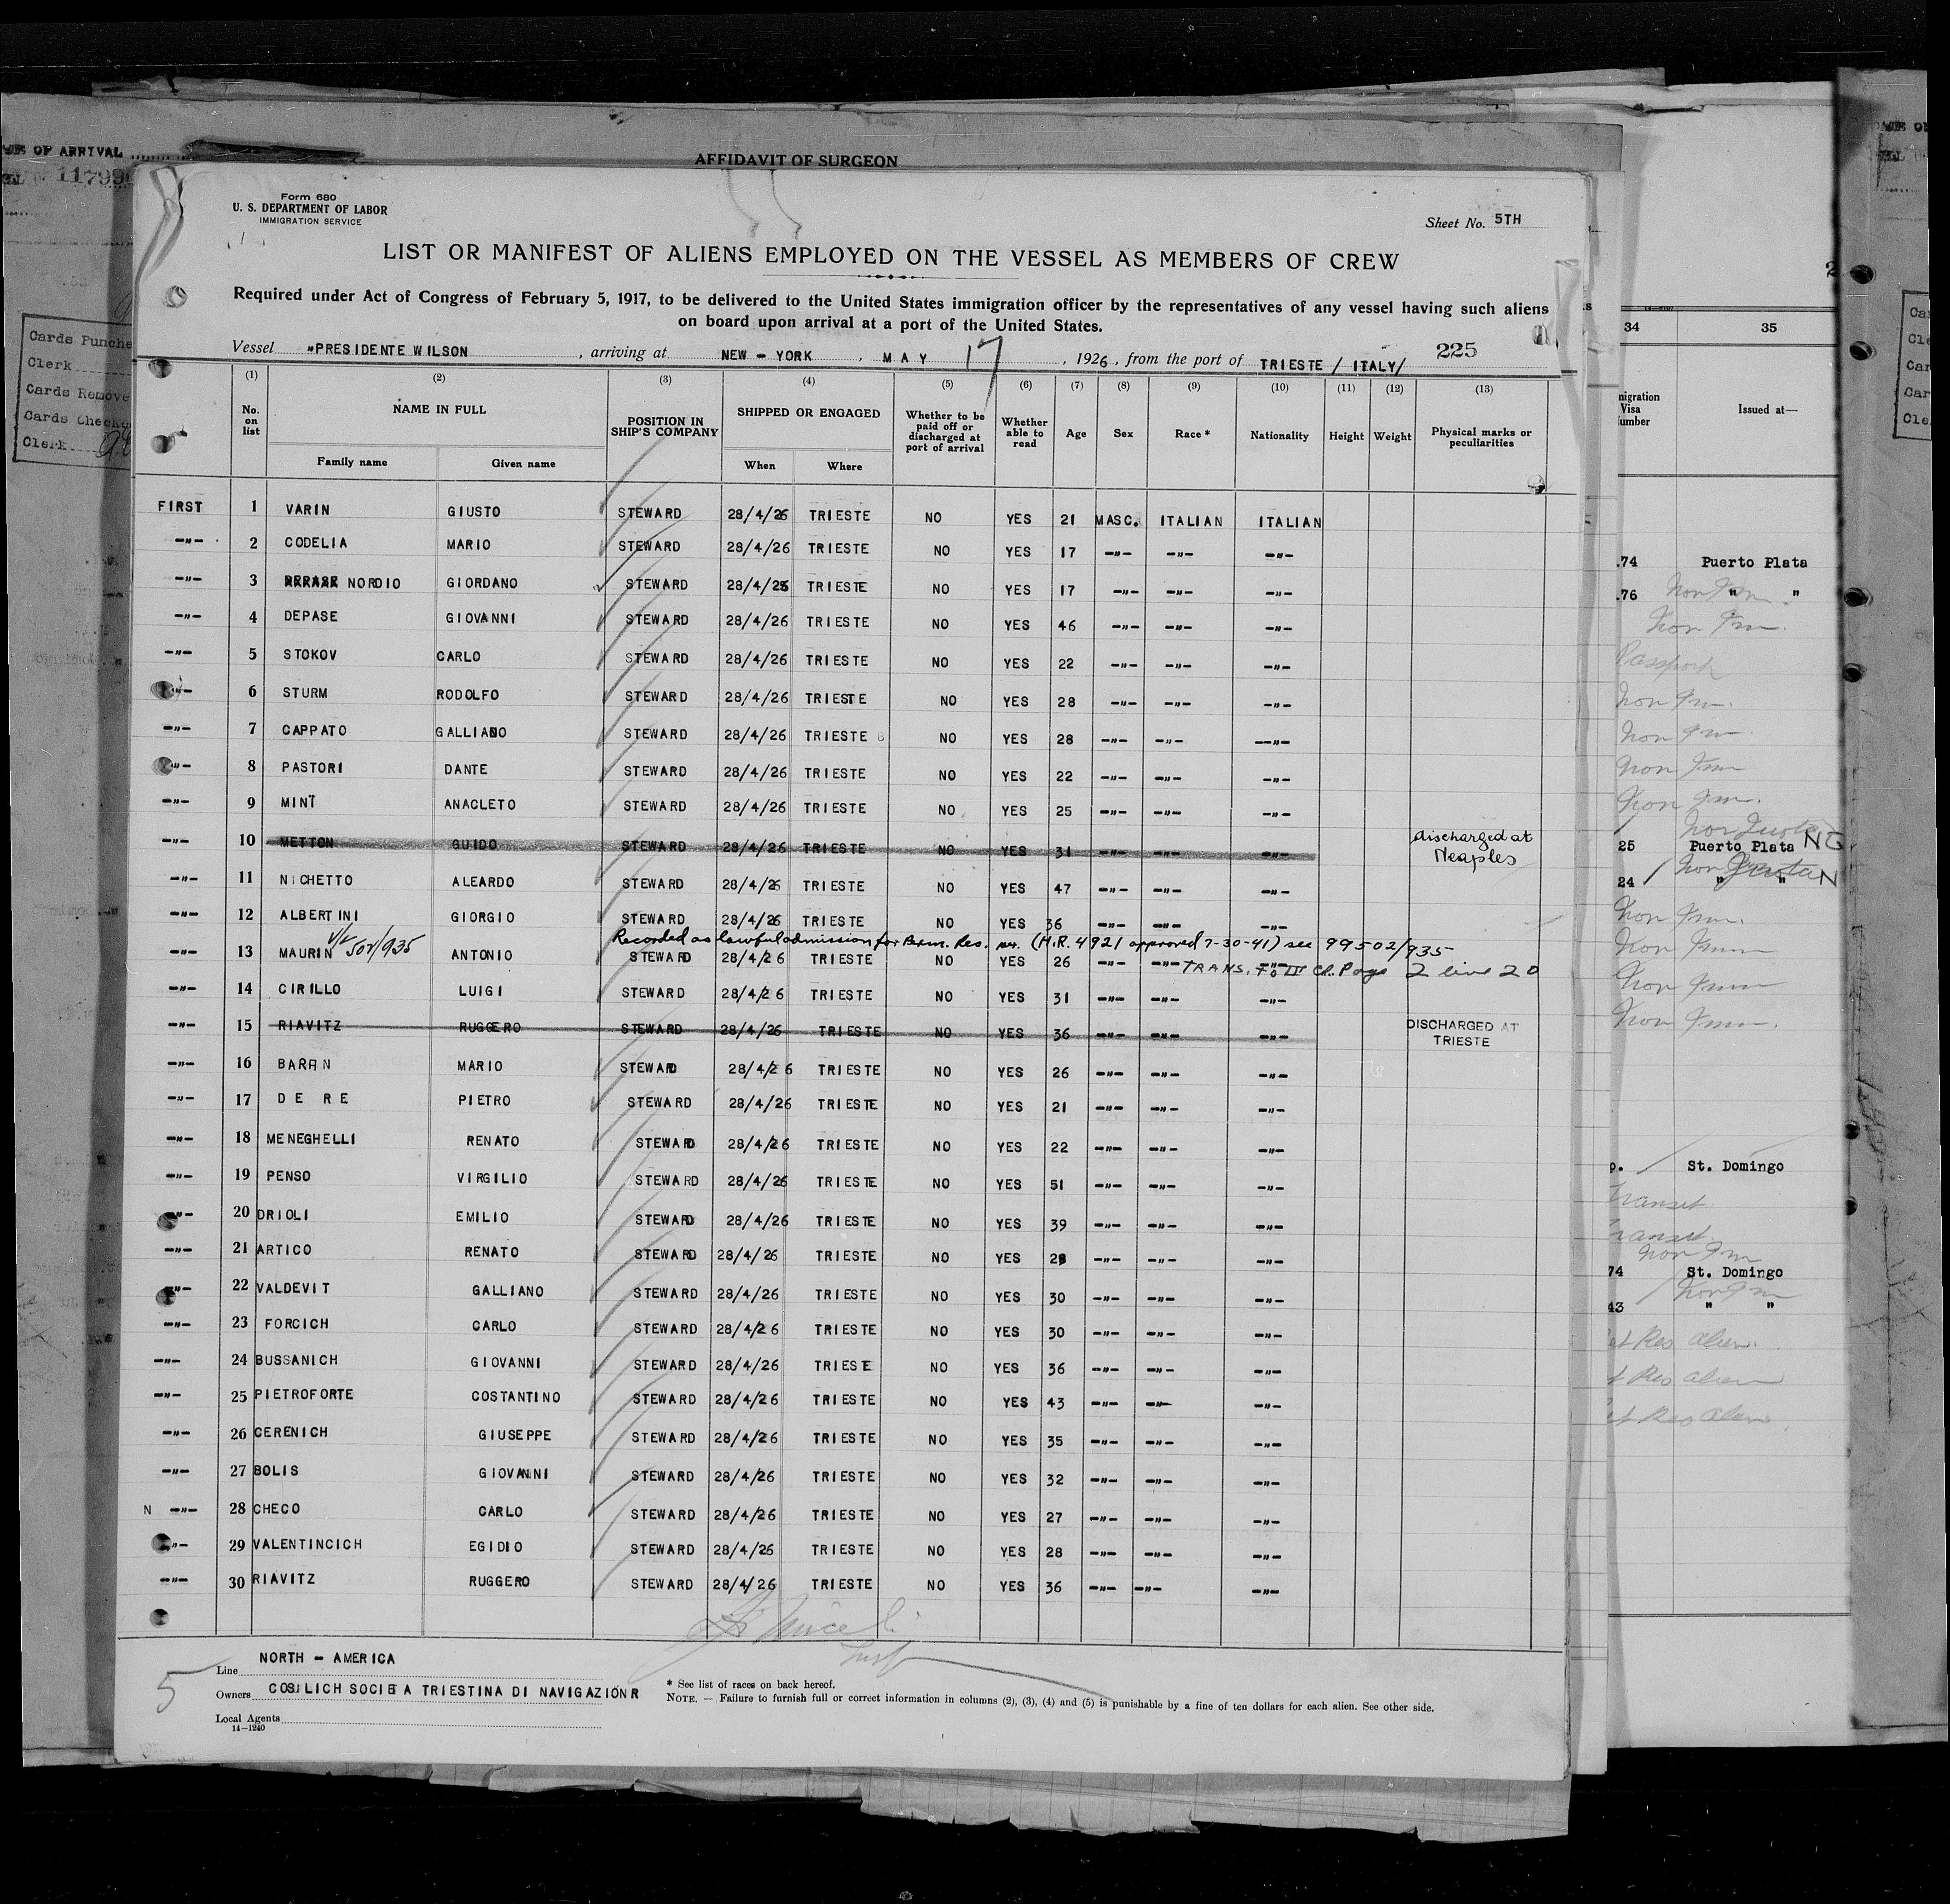 AFFIDAVIT OF SURGEON
OF ARRIVAL
11799
Cards Punche
Clerk
Cards Remove
Cards Checke
Clerk
Form 680
U. S. DEPARTMENT OF LABOR
IMMIGRATION SERVICE
Sheet No. 5TH
LIST OR MANIFEST OF ALIENS EMPLOYED ON THE VESSEL AS MEMBERS OF CREW
Required under Act of Congress of February 5, 1917, to be delivered to the United States immigration officer by the representatives of any vessel having such aliens
on board upon arrival at a port of the United States.
Vessel "PRESIDENTE WILSON , arriving at NEW - YORK , MAY 17 , 1926 , from the port of TRIESTE / ITALY/ 225
(1) (2) (3) (4) (5) (6) (7) (8) (9) (10) (11) (12) (13)
No. on list NAME IN FULL POSITION IN SHIP'S COMPANY SHIPPED OR ENGAGED Whether to be paid off or discharged at port of arrival Whether able to read Age Sex Race* Nationality Height Weight Physical marks or peculiarities
Family name Given name When Where
FIRST 1 VARIN GIUSTO STEWARD 28/4/26 TRIESTE NO YES 21 MASC. ITALIAN ITALIAN
-"- 2 CODELIA MARIO STEWARD 28/4/26 TRIESTE NO YES 17 -"- -"- -"-
-"- 3 NORDIO GIORDANO STEWARD 28/4/26 TRIESTE NO YES 17 -"- -"- -"-
-"- 4 DEPASE GIOVANNI STEWARD 28/4/26 TRIESTE NO YES 46 -"- -"- -"-
-"- 5 STOKOV CARLO STEWARD 28/4/26 TRIESTE NO YES 22 -"- -"- -"-
-"- 6 STURM RODOLFO STEWARD 28/4/26 TRIESTE NO YES 28 -"- -"- -"-
-"- 7 CAPPATO GALLIANO STEWARD 28/4/26 TRIESTE NO YES 28 -"- -"- -"-
-"- 8 PASTORI DANTE STEWARD 28/4/26 TRIESTE NO YES 22 -"- -"- -"-
-"- 9 MINI ANACLETO STEWARD 28/4/26 TRIESTE NO YES 25 -"- -"- -"-
-"- 10 METTON GUIDO STEWARD 28/4/26 TRIESTE NO YES 31 -"- -"- -"- discharged at Neaples
-"- 11 NICHETTO ALEARDO STEWARD 28/4/26 TRIESTE NO YES 47 -"- -"- -"-
-"- 12 ALBERTINI GIORGIO STEWARD 28/4/26 TRIESTE NO YES 36 -"- -"- -"-
Recorded as lawful admission for Perm. Res. per. (H.R. 4921 approved 7-30-41) see 99502/935
-"- 13 MAURIN 502/935 ANTONIO STEWARD 28/4/26 TRIESTE NO YES 26 -"- -"- -"-
TRANS. To III Cl. Page 2 line 20
-"- 14 CIRILLO LUIGI STEWARD 28/4/26 TRIESTE NO YES 31 -"- -"- -"-
-"- 15 RIAVITZ RUGGERO STEWARD 28/4/26 TRIESTE NO YES 36 -"- -"- -"- DISCHARGED AT TRIESTE
-"- 16 BARAN MARIO STEWARD 28/4/26 TRIESTE NO YES 26 -"- -"- -"-
-"- 17 DE RE PIETRO STEWARD 28/4/26 TRIESTE NO YES 21 -"- -"- -"-
-"- 18 MENEGHELLI RENATO STEWARD 28/4/26 TRIESTE NO YES 22 -"- -"- -"-
-"- 19 PENSO VIRGILIO STEWARD 28/4/26 TRIESTE NO YES 51 -"- -"- -"-
-"- 20 DRIOLI EMILIO STEWARD 28/4/26 TRIESTE NO YES 39 -"- -"- -"-
-"- 21 ARTICO RENATO STEWARD 28/4/26 TRIESTE NO YES 28 -"- -"- -"-
-"- 22 VALDEVIT GALLIANO STEWARD 28/4/26 TRIESTE NO YES 30 -"- -"- -"-
-"- 23 FORCICH CARLO STEWARD 28/4/26 TRIESTE NO YES 30 -"- -"- -"-
-"- 24 BUSSANICH GIOVANNI STEWARD 28/4/26 TRIESTE NO YES 36 -"- -"- -"-
-"- 25 PIETROFORTE COSTANTINO STEWARD 28/4/26 TRIESTE NO YES 43 -"- -"- -"-
-"- 26 CERENICH GIUSEPPE STEWARD 28/4/26 TRIESTE NO YES 35 -"- -"- -"-
-"- 27 BOLIS GIOVANNI STEWARD 28/4/26 TRIESTE NO YES 32 -"- -"- -"-
N -"- 28 CHECO CARLO STEWARD 28/4/26 TRIESTE NO YES 27 -"- -"- -"-
-"- 29 VALENTINCICH EGIDIO STEWARD 28/4/26 TRIESTE NO YES 28 -"- -"- -"-
-"- 30 RIAVITZ RUGGERO STEWARD 28/4/26 TRIESTE NO YES 36 -"- -"- -"-
5
Line NORTH - AMERICA
Owners COSULICH SOCIETA TRIESTINA DI NAVIGAZIONR
Local Agents
14-1240
* See list of races on back hereof.
NOTE. — Failure to furnish full or correct information in columns (2), (3), (4) and (5) is punishable by a fine of ten dollars for each alien. See other side.
34 35
Visa Issued at—
74 Puerto Plata
76 " "
Passport
25 Puerto Plata
24 " "
St. Domingo
Transit
74 St. Domingo
43 " "
Res Alien
Res Alien
Res Alien